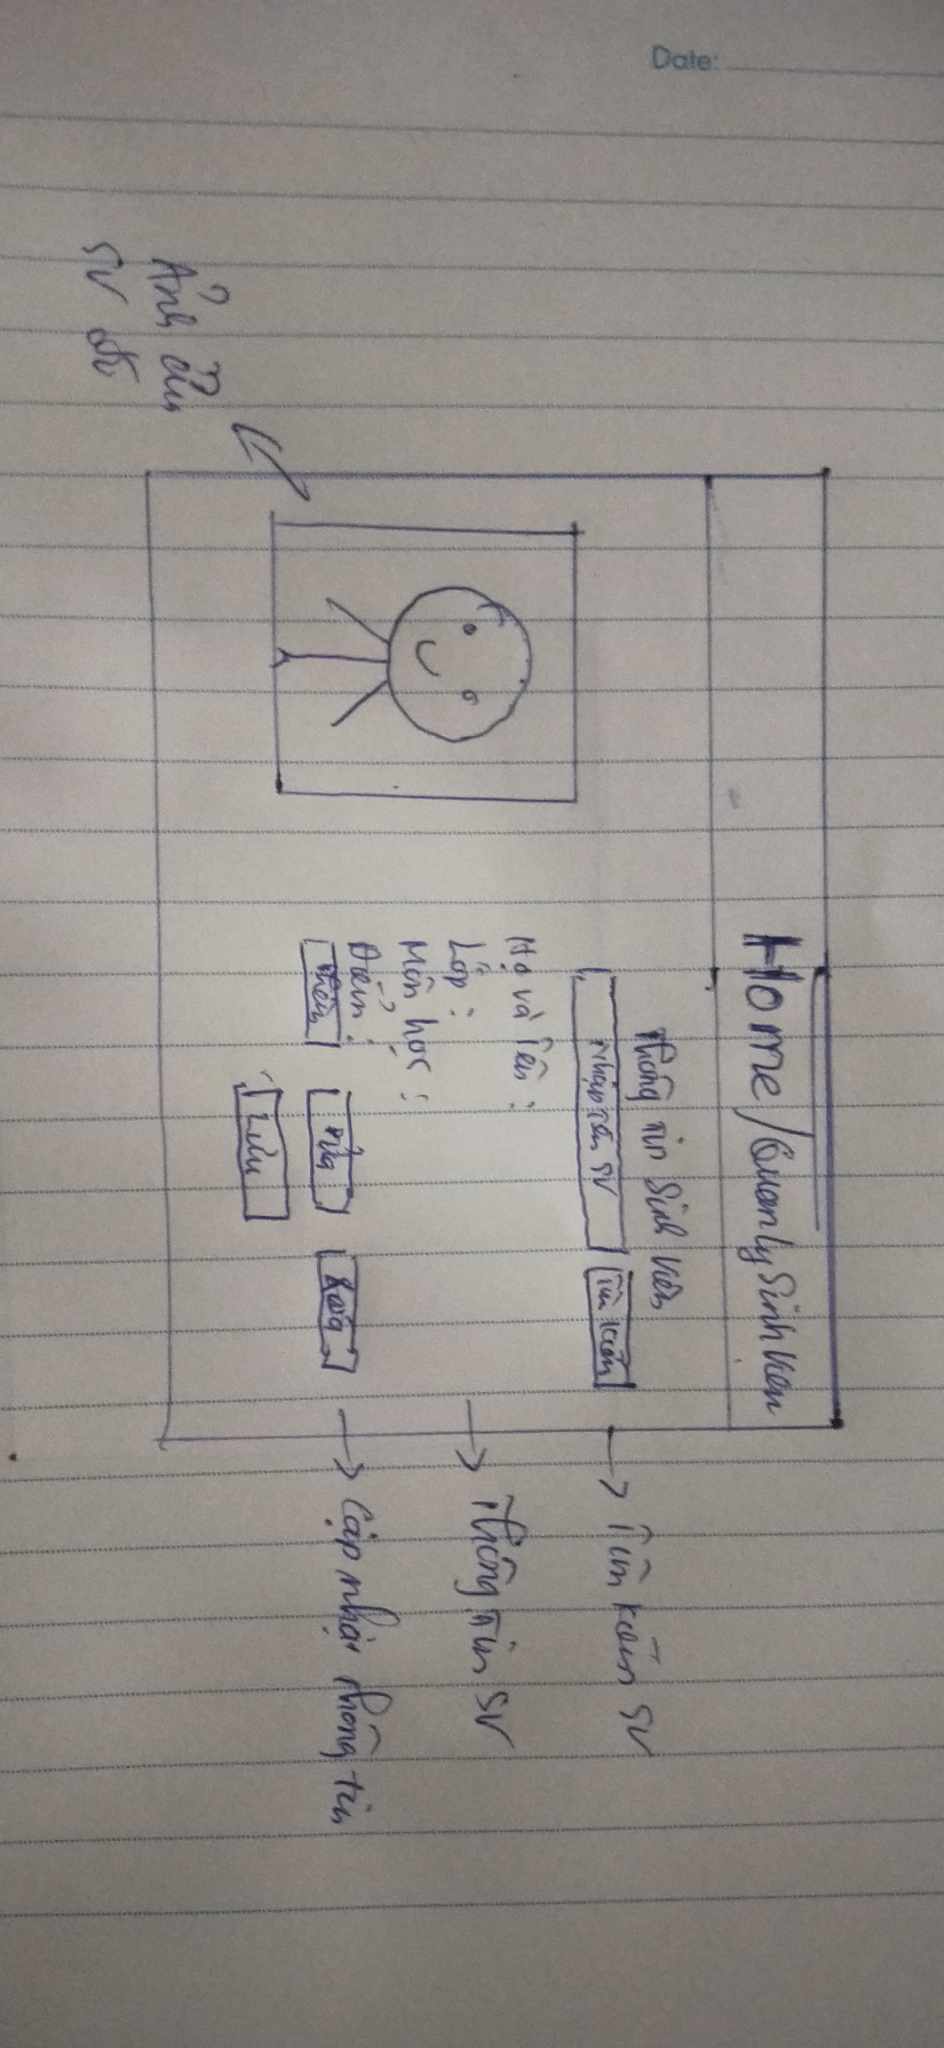 Date:
Home/Quanly Sinh viên
Thông tin Sinh viên
Nhập tên SV
Tìm kiếm
→ Tìm kiếm SV
Họ và Tên :
Lớp :
Môn học :
Điểm :
→ Thông tin SV
Thêm
Sửa
Xoá
→ Cập nhật thông tin
Lưu
Ảnh của
SV đó